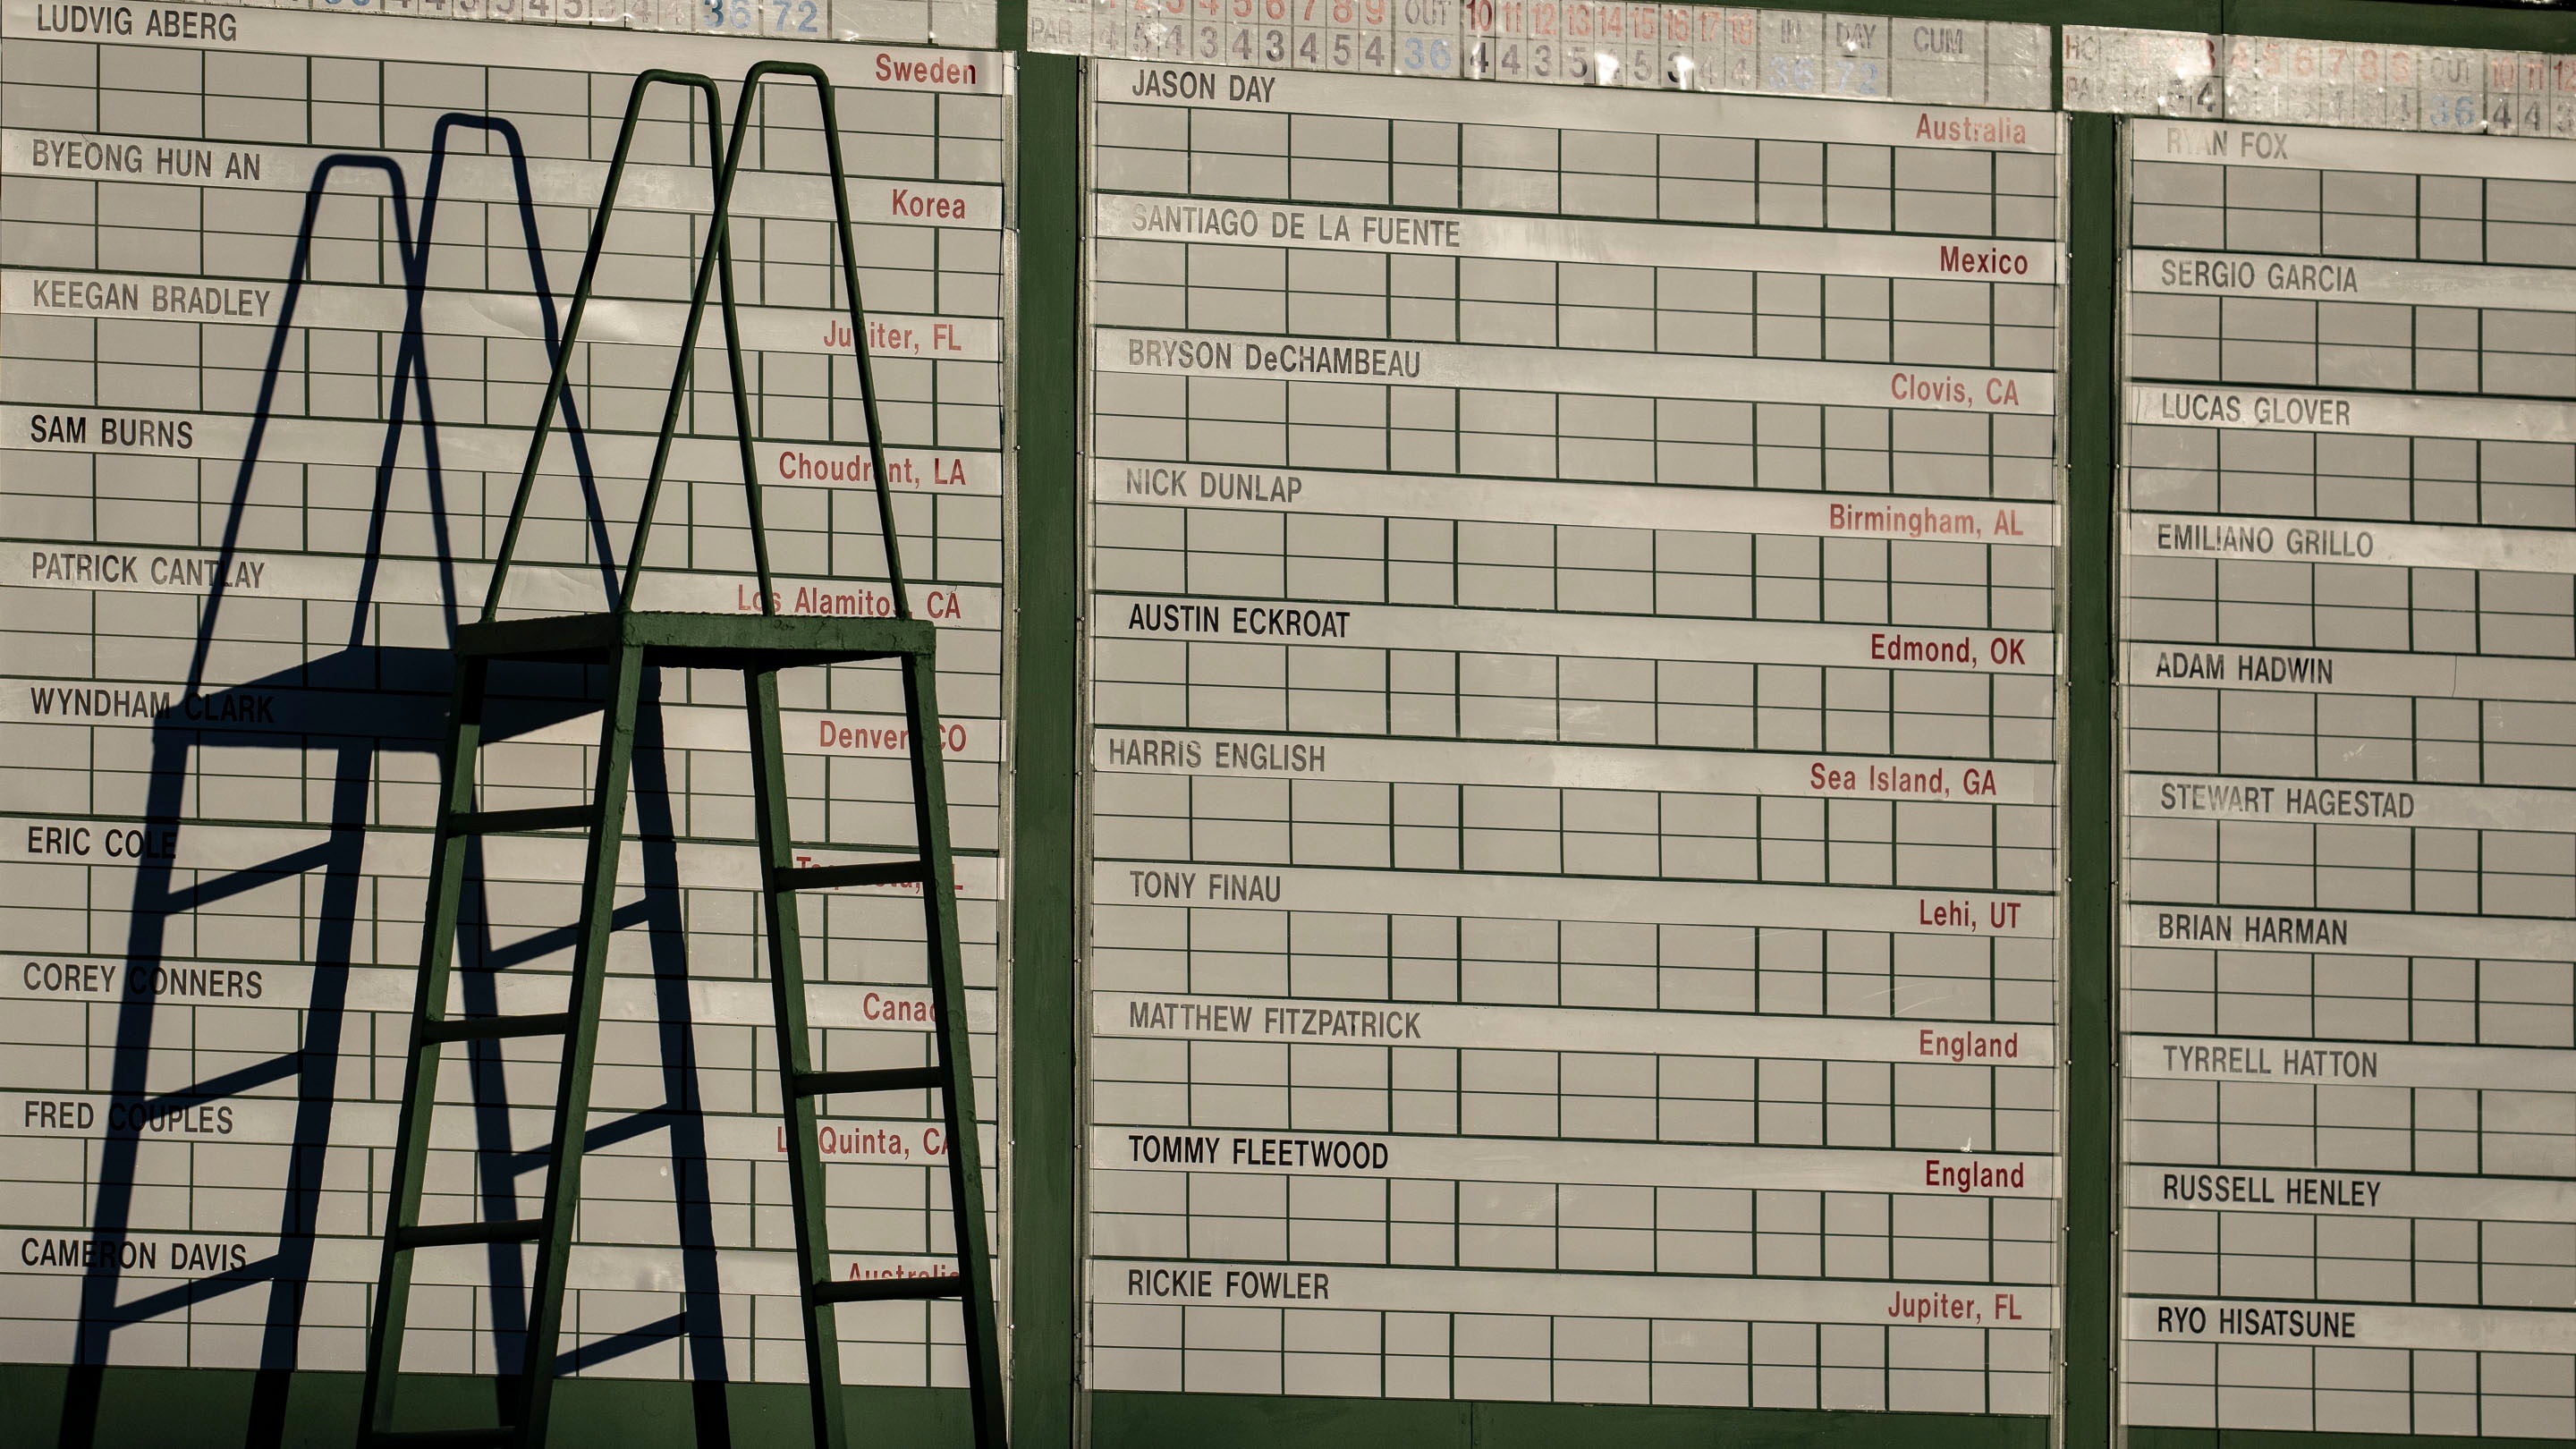 36 72
LUDVIG ABERG
Sweden
BYEONG HUN AN
Korea
KEEGAN BRADLEY
Jupiter, FL
SAM BURNS
Choudrant, LA
PATRICK CANTLAY
Los Alamitos, CA
WYNDHAM CLARK
Denver, CO
ERIC COLE
COREY CONNERS
Canada
FRED COUPLES
La Quinta, CA
CAMERON DAVIS
Australia
3 4 5 6 7 8 9 OUT 10 11 12 13 14 15 16 17 18 IN DAY CUM
PAR 4 5 4 3 4 3 4 5 4 36 4 4 3 5 5 3 4 4 36 72
JASON DAY
Australia
SANTIAGO DE LA FUENTE
Mexico
BRYSON DeCHAMBEAU
Clovis, CA
NICK DUNLAP
Birmingham, AL
AUSTIN ECKROAT
Edmond, OK
HARRIS ENGLISH
Sea Island, GA
TONY FINAU
Lehi, UT
MATTHEW FITZPATRICK
England
TOMMY FLEETWOOD
England
RICKIE FOWLER
Jupiter, FL
3 4 5 6 7 8 9 OUT 10 11 12
PAR 4 36 4 4 3
RYAN FOX
SERGIO GARCIA
LUCAS GLOVER
EMILIANO GRILLO
ADAM HADWIN
STEWART HAGESTAD
BRIAN HARMAN
TYRRELL HATTON
RUSSELL HENLEY
RYO HISATSUNE